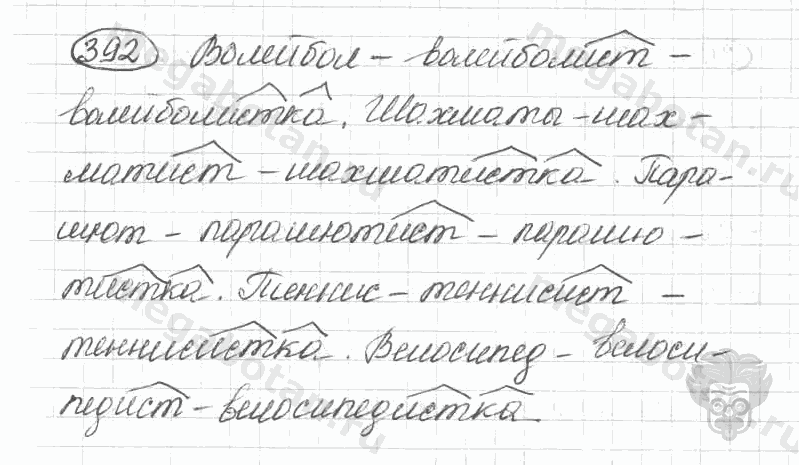 392 Волейбол – волейболист –
волейболистка. Шахматы – шах-
матист – шахматистка. Пара-
шют – парашютист – парашю-
тистка. Теннис – теннисист –
теннисистка. Велосипед – велоси-
педист – велосипедистка.
megabotan.ru
megabotan.ru
megabotan.ru
megabotan.ru